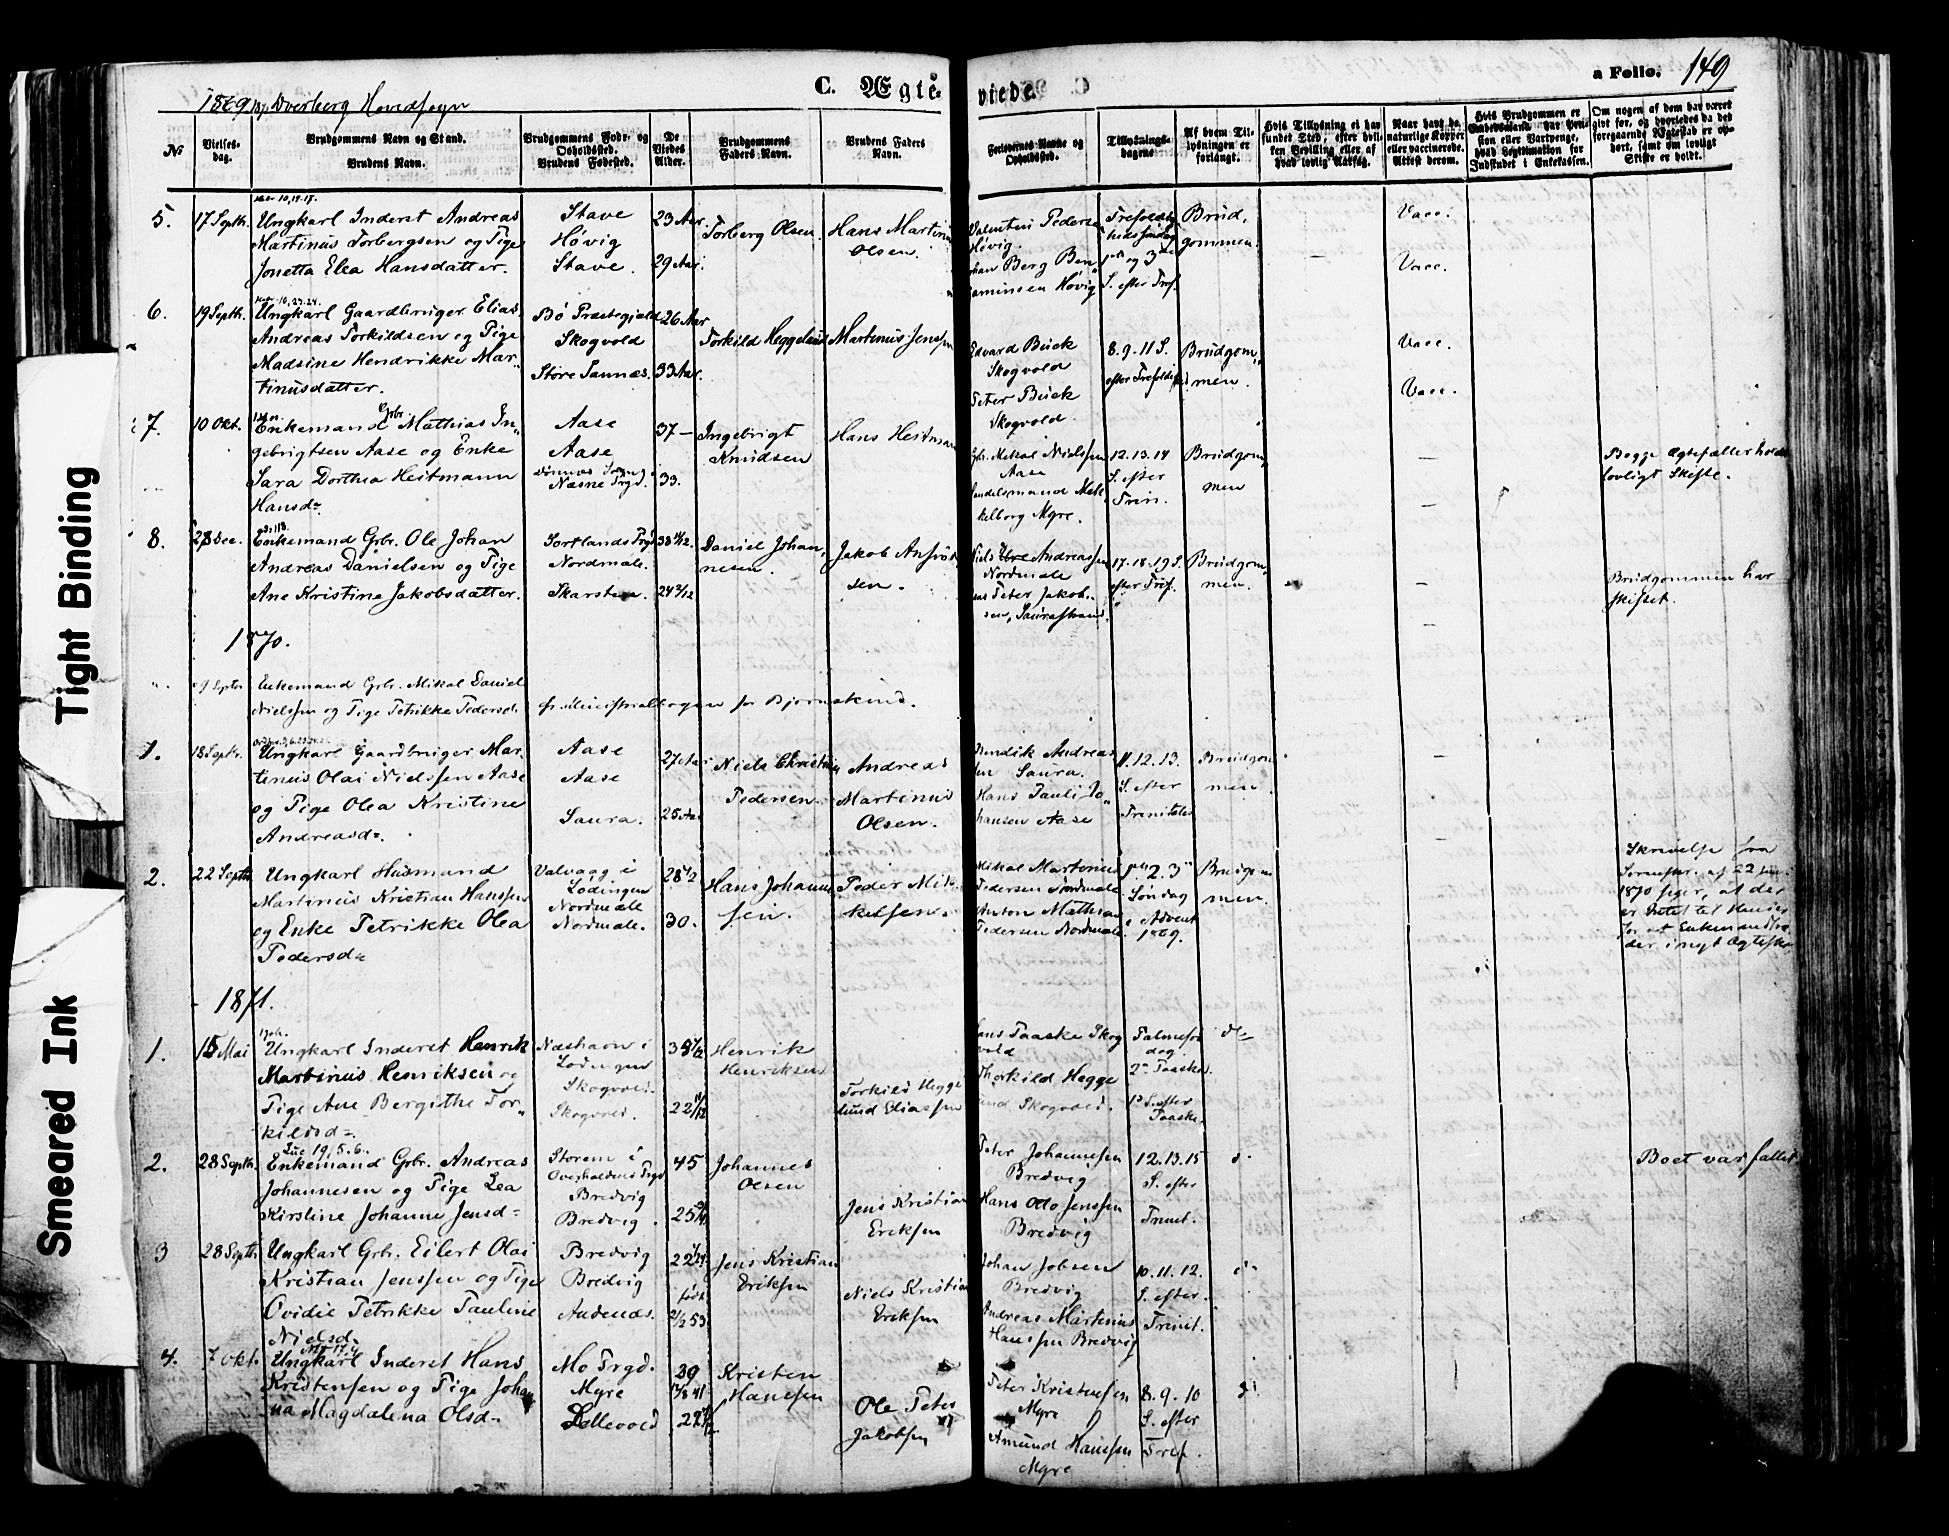 C. Ægte-
viede.
a Folio. 149
1869 Dverberg Hovedsogn
Tight Binding
Smeared Ink
№
Vielses-
dag.
Brudgommens Navn og Stand.
Brudens Navn.
Brudgommens Føde- og
Opholdssted.
Brudens Fødested.
De
Viedes
Alder.
Brudgommens
Faders Navn.
Brudens Faders
Navn.
Forlovernes Navne og
Opholdssted.
Tillysnings-
dagene.
Af hvem Til-
lysningen er
forlangt.
Hvis Tillysning ei har
fundet Sted, efter hvil-
ken Bevilling eller af
hvad lovlig Aarsag.
Naar havt de
naturlige Kopper
eller vaccinerede.
Attest derom.
Hvis Brudgommen er
har Pen-
sion eller Vartpenge,
hvad Legitimation for
Indskudet i Enkekassen.
Om nogen af dem har været
gift før, og hvorledes da det
foregaaende Ægteskab er op-
hørt, samt om lovligt
Skifte er holdt.
5. 17 Septb.
Ungkarl Inderst Andreas
Martinus Torbergsen og Pige
Jonetta Elea Hansdatter.
Stave
Høvig
Stave.
23 Aar.
29 Aar.
Torberg Olsen.
Hans Martin
Olsen.
Valentin Peders
Høvig.
Johan Berg Ben„
jaminsen Høvig
og 3
S. efter Tref.
Brud,
gommen.
Vacc.
Vacc.
6. 19 Septb.
Ungkarl Gaardbruger Elias
Andreas Torkildsen og Pige
Madsine Hendrikke Mar-
tinusdatter.
Bø Præstegjeld
Skogvold
Store Saunæs.
26 Aar
33 Aar.
Torkild Heggelund
Martinus Jenssen
Edvard Buck
Skogvold
Peter Buck
Skogvold.
8. 9. 11 S.
efter Trefoldigh.
Brudgom„
men.
Vacc.
Vacc.
7. 10 Okt.
Enkemand Gbr. Mathias In„
gebrigtsen Aase og Enke
Sara Dorthea Heitmann
Hansd=
Aase
Aase
Dønnæs Sogn
Næsne Prgd.
37 —
33.
Ingebrigt
Knudsen
Hans Heitman
Gbr. Mikal Nielssen
Aase
Handelsmand Mek
kelborg Myre.
12. 13. 14
S. efter
Trin.
Brudgom„
men
Begge Ægtefæller holdt
lovligt Skifte.
8.
Enkemand Gbr. Ole Johan
Andreas Danielsen og Pige
Ane Kristine Jakobsdatter.
Sortlands Prgd
Nordmæle.
Skarsten.
24 2/12
Daniel Johan„
nesen.
Jakob
sen.
Niels Andreassen
Nordmæle
Peter Jakob-
sen, Saurastrand.
17. 18. 19 S.
efter Tref.
Brudgom„
men.
Brudgommen har
skiftet.
1870.
9 Septbr
Enkemand Gbr. Mikal Daniel
Nielssen og Pige Petrikke Pedersd.
Ministerialbogen for Bjørnskind.
1. 18 Septbr.
Ungkarl Gaardbruger Mar-
tinus Olai Nielssen Aase
og Pige Olea Kristine
Andreasd=
Aase
Aase
Saura.
27 Aar
25 Aar
Niels Christian
Pedersen.
Andreas
Martinus
Olsen.
Hendik Andreas
sen Saura.
Hans Pauli Jo„
hansen Aase
11. 12. 13.
S. efter
Trinitatis
Brudgom
men.
2. 22 Septbr
Ungkarl Husmand
Martinus Kristian Hanssen
og Enke Petrikke Olea
Pedersd=
Valvaag i
Lødingen
Nordmæle
Nordmæle.
28 1/2
30.
Hans Johann
sen.
Peder Mik
kelsen.
Mikal Martinus
Pedersen Nordmæle
Anton Mathias
Pedersen Nordmæle
1ste 2. 3"
Søndag
i Advent
1869.
Brudgom
men.
Skrivelse fra
Sorenskr. af 22
1870 siger, at der
er Intet til Hinder
for at Enkemand
der i nyt Ægteskab
1871.
1. 15 Mai
Ungkarl Inderst Henrik
Martinus Henriksen og
Pige Ane Bergithe Tor„
kildsd=
Næshavn i
Lødingen
Skogvold.
Skogvold.
22 11/12
Henrik
Henriksen
Torkild Hegge
lund Eliassen
Hans Paaske Skog
vold
Thorkild Hegge
lund Skogvold.
Palmesøn
dag.
2den Paaske.
1ste S. efter
Paaske.
d=
2. 28 Septb.
Luc 19, 5. 6.
Enkemand Gbr. Andreas
Johannesen og Pige Lea
Kirstine Johanne Jensd=
Storem i
Overhaldens Prgd
Bredvig
Bredvig.
45
Johannes
Olsen
Jens Kristian
Eriksen
Peter Johannesen
Bredvig
Hans Otto Jenssen
Bredvig
12. 13. 15
S. efter
Trinit.
d.
Boet var fallit.
3 28 Septb
Ungkarl Gbr. Eilert Olai
Kristian Jenssen og Pige
Ovidie Petrikke Pauline
Nielsd=
Bredvig
Bredvig
Andenæs.
født
Jens Kristian
Eriksen
Niels Kristian
Eriksen
Johan Jobsen
Bredvig
Andreas Martinus
Hanssen Bredvig
10. 11. 12.
S. efter.
Trinit.
d.
4. 7 Okt.
Ungkarl Inderst Hans
Kristensen og Pige Johan
na Magdalena Olsd=
Mo Prgd.
Myre
Kristen
Hanssen
Ole Peter
Jakobsen
Peter Kristensen
Myre
Amund Hanssen
Myre
8. 9. 10
S. efter
Tref.